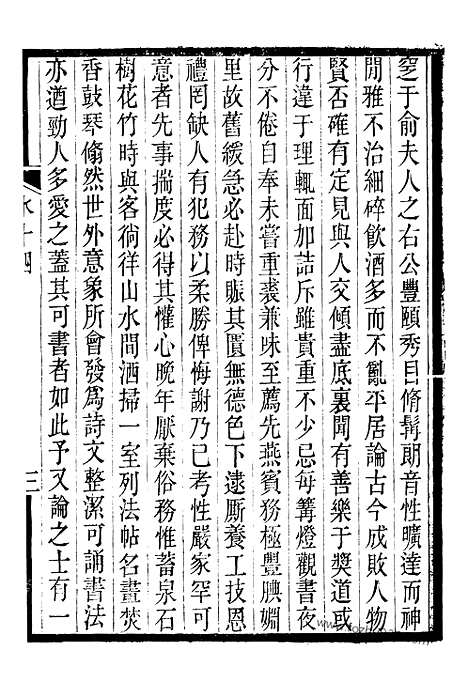 窆于俞夫人之右公豐頤秀目脩髯朗音性曠達而神
閒雅不治細碎飲酒多而不亂平居論古今成敗人物
賢否確有定見與人交傾盡底裏聞有善樂于奬道或
行違于理輒面加詰斥雖貴重不少忌每篝燈觀書夜
分不倦自奉未嘗重裘兼味至薦先燕賓務極豐腆婣
里故舊緩急必赴時賑其匱無德色下逮厮養工技恩
禮罔缺人有犯務以柔勝俾悔謝乃已考性嚴家罕可
意者先事揣度必得其懽心晚年厭棄俗務惟蓄泉石
樹花竹時與客徜徉山水間洒掃一室列法帖名畫焚
香鼓琴翛然世外意象所會發爲詩文整潔可誦書法
亦遒勁人多愛之蓋其可書者如此予又論之士有一
水十四
三